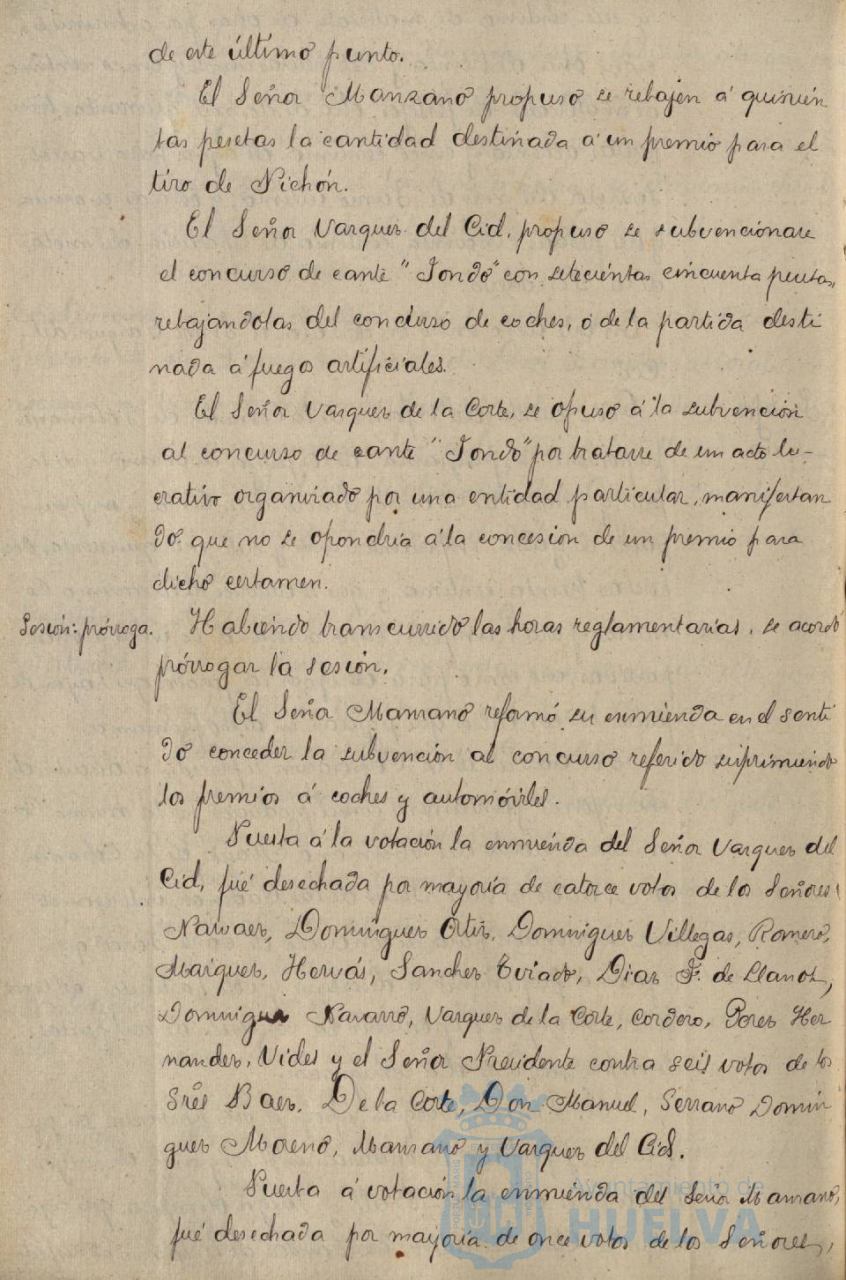 de este último punto.
El Señor Manzano propuso se rebajen á quinien
tas pesetas la cantidad destinada á un premio para el
tiro de Pichón.
El Señor Vazquez del Cid, propuso se subvencionase
el concurso de cante "Jondo" con setecientas cincuenta pesetas,
rebajandolas del concurso de coches, ó de la partida desti
nada á fuegos artificiales.
El Señor Vazquez de la Corte, se opuso á la subvención
al concurso de cante "Jondo" por tratarse de un acto lu-
crativo organizado por una entidad particular, manifestan
do que no se opondría á la concesion de un premio para
dicho certamen.
Sesión: prórroga.
Habiendo transcurrido las horas reglamentarias, se acordó
prórrogar la sesión.
El Señor Manzano reformó su enmienda en el senti
do conceder la subvención al concurso referido suprimiendo
los premios á coches y automóviles.
Puesta á la votación la enmienda del Señor Vazquez del
Cid, fué desechada por mayoría de catorce votos de los Señores
Narvaez, Dominguez Ortiz, Dominguez Villegas, Romero,
Marquez, Hervás, Sanchez Tirado, Diaz F. de Llanos,
Dominguez Navarro, Vazquez de la Corte, Cordero, Perez Her
nandez, Vides y el Señor Presidente contra seis votos de los
Srés Baez, De la Corte, Don Manuel, Serrano Domin
guez Moreno, Manzano y Vazquez del Cid.
Puesta á votación la enmienda del Señor Manzano,
fué desechada por mayoría de once votos de los Señores,
Ayuntamiento de
HUELVA